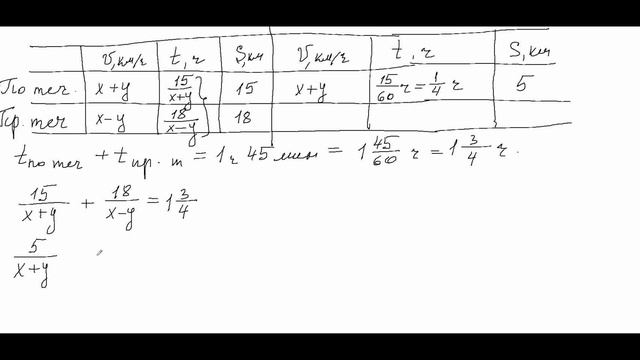 V, км/ч t, ч S, км V, км/ч t, ч S, км
По теч. x+y 15/(x+y) 15 x+y 15/60 ч = 1/4 ч 5
Пр. теч x−y 18/(x−y) 18
t по теч + t пр. т = 1 ч 45 мин = 1 45/60 ч = 1 3/4 ч.
15/(x+y) + 18/(x−y) = 1 3/4
5/(x+y)